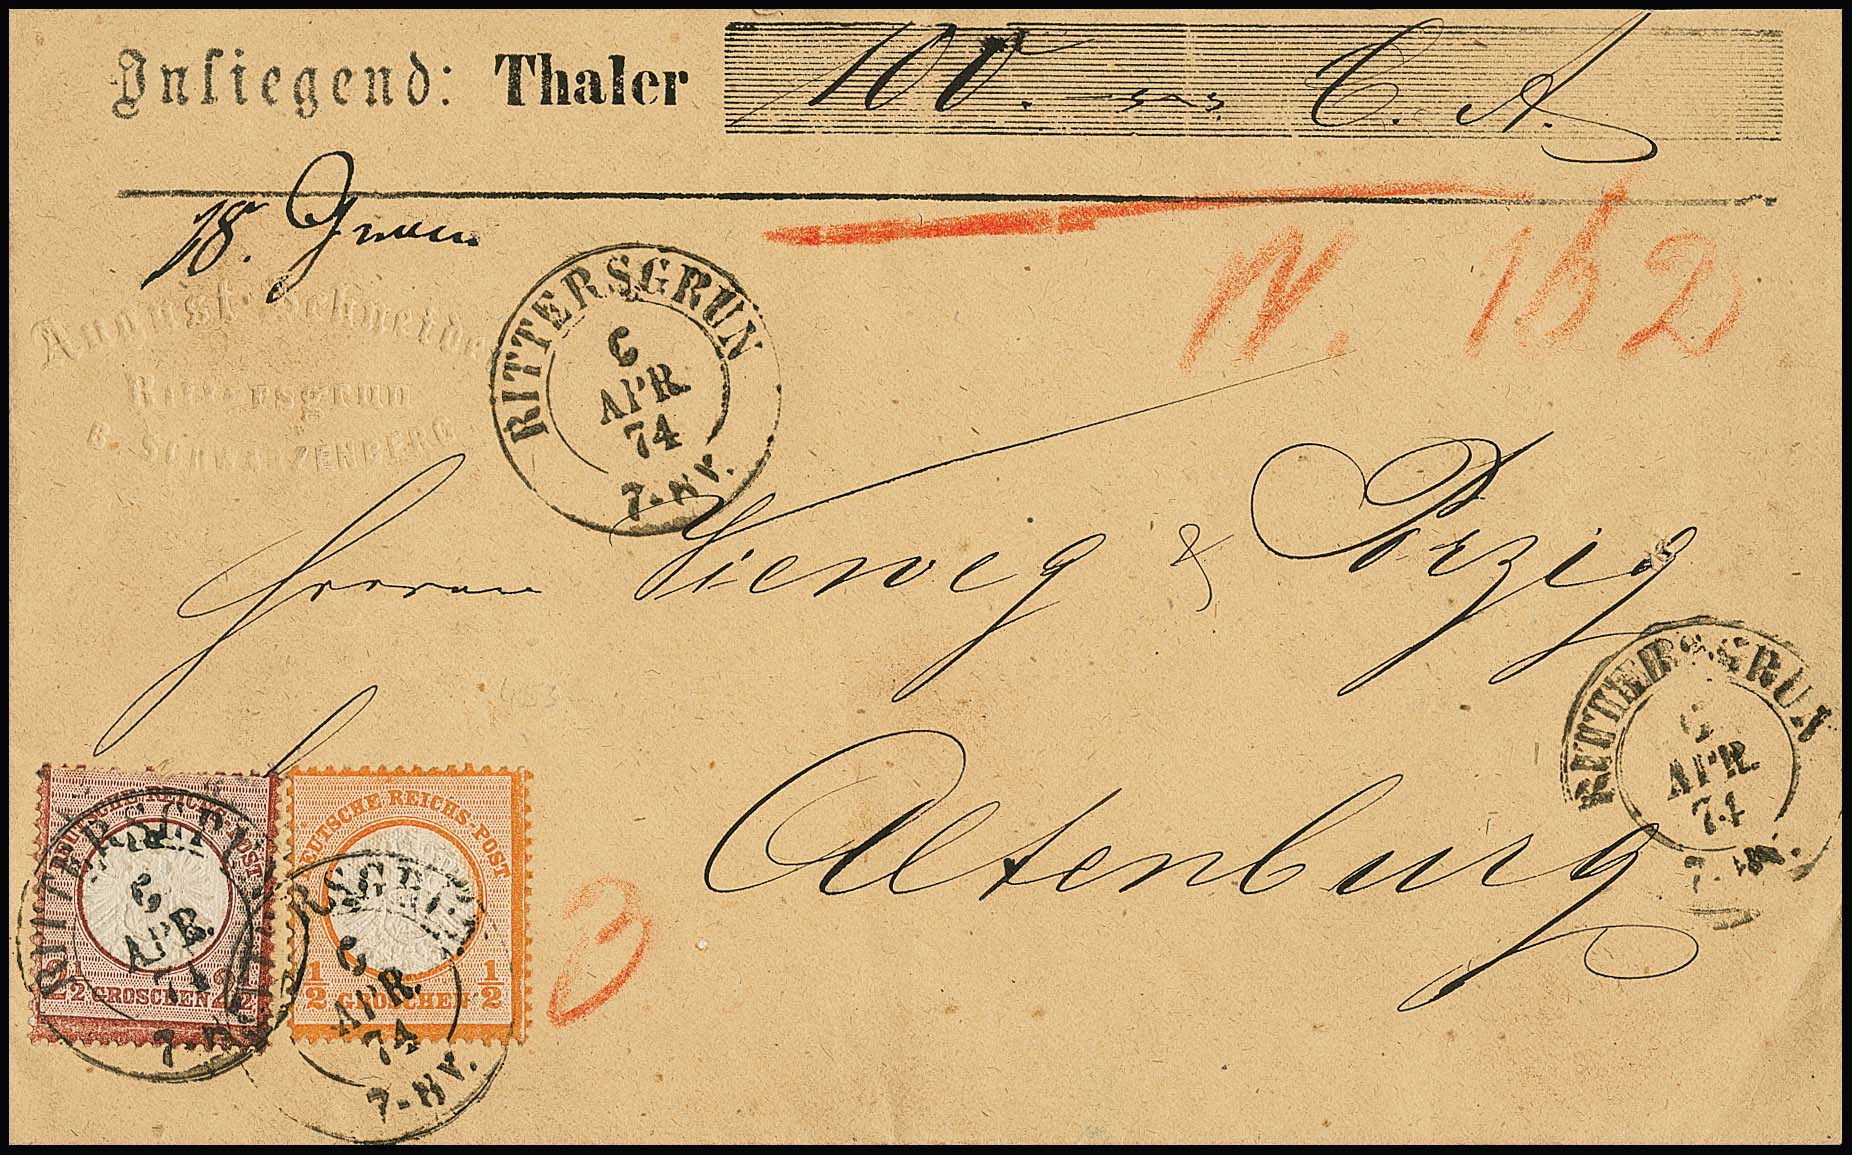 Inliegend: Thaler 100. C. A.
18. Gramm
August Schneider
Rittersgrün
B. SCHWARZENBERG
RITTERSGRÜN
6
APR.
74
7-8 V.
N. 162
Herren Vierveg & Porzig
Altenburg
RITTERSGRÜN
6
APR.
74
DEUTSCHE REICHS-POST
2 1/2 GROSCHEN 2 1/2
RITTERSGRÜN
6
APR.
74
DEUTSCHE REICHS-POST
1/2 GROSCHEN 1/2
6
APR.
74
3